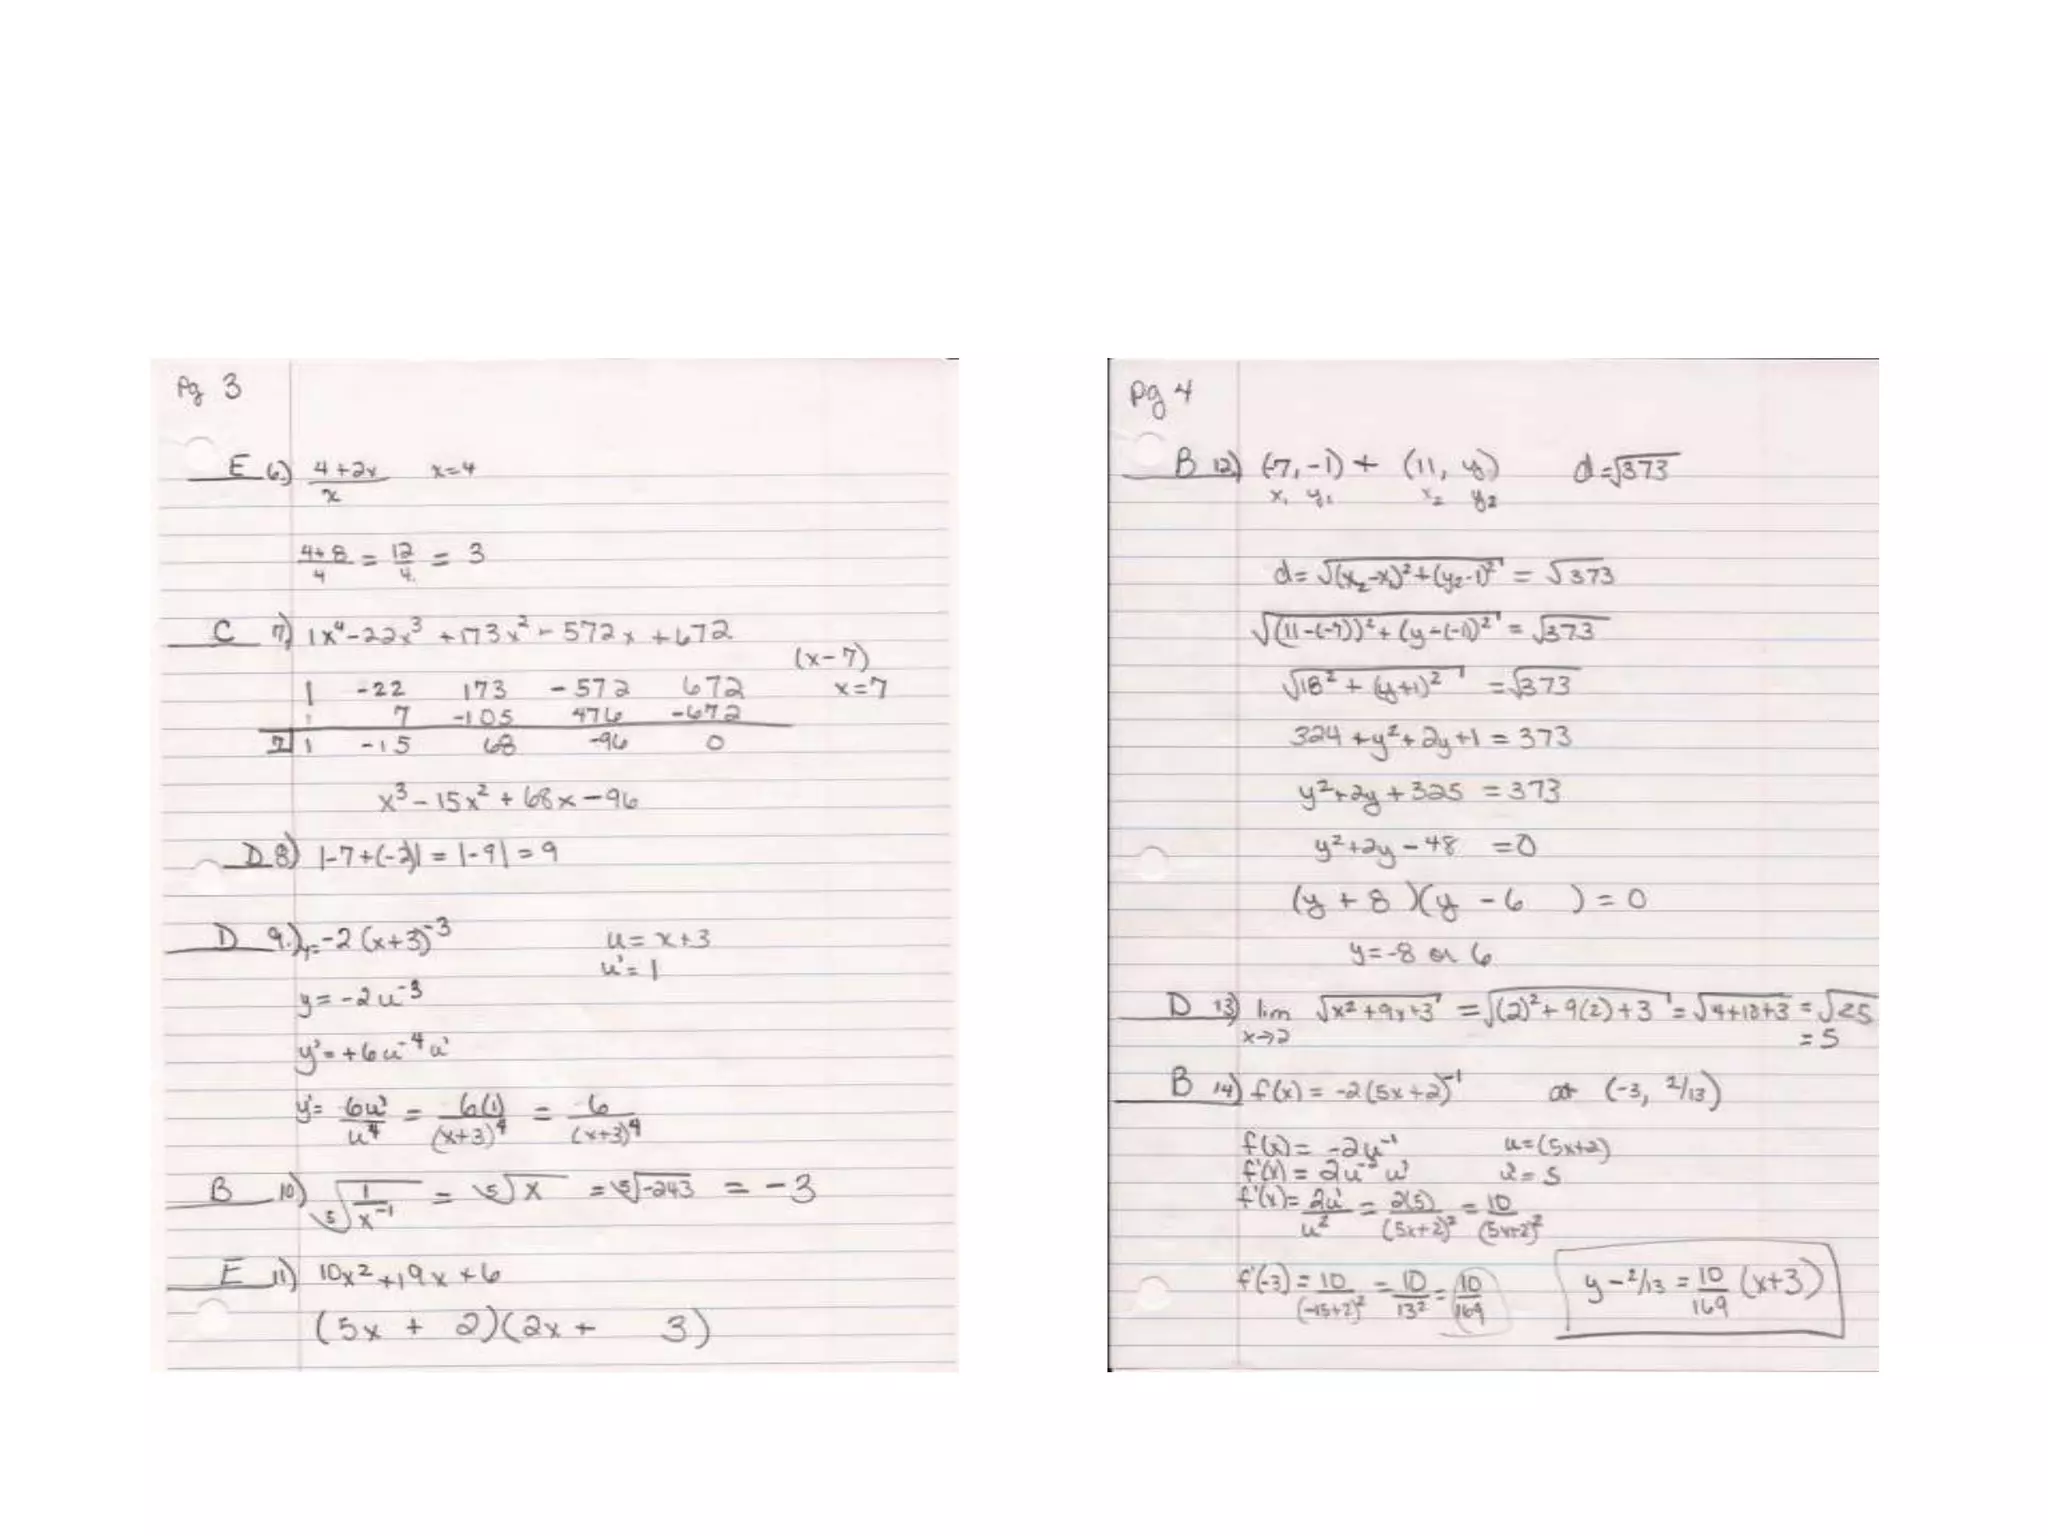 Pg 3
E 6.) 4+2x/x x=4
4+8/4 = 12/4 = 3
C 7) 1x⁴-22x³+173x²-572x+672
(x-7)
1 -22 173 -572 672 x=7
7 -105 476 -672
7| 1 -15 68 -96 0
x³-15x²+68x-96
D 8) |-7+(-2)| = |-9| = 9
D 9.) y=-2(x+3)⁻³ u=x+3
u'=1
y=-2u⁻³
y'=+6u⁻⁴u'
y'= 6u'/u⁴ = 6(1)/(x+3)⁴ = 6/(x+3)⁴
B 10) ⁵√(1/x⁻¹) = ⁵√x = ⁵√-243 = -3
E 11) 10x²+19x+6
(5x + 2)(2x + 3)
Pg 4
B 12) (-7,-1) + (11, y) d=√373
x₁ y₁ x₂ y₂
d=√(x₂-x₁)²+(y₂-1)² = √373
√(11-(-7))²+(y-(-1))² = √373
√18²+(y+1)² = √373
324+y²+2y+1 = 373
y²+2y+325 = 373
y²+2y-48 = 0
(y + 8)(y - 6 ) = 0
y=-8 or 6
D 13) lim √x²+9x+3 = √(2)²+9(2)+3 = √4+18+3 = √25
x→2 = 5
B 14) f(x) = -2(5x+2)⁻¹ at (-3, 2/13)
f(x) = -2u⁻¹ u=(5x+2)
f'(x) = 2u⁻²u' u'=5
f'(x) = 2u'/u² = 2(5)/(5x+2)² = 10/(5x+2)²
f'(-3) = 10/(-15+2)² = 10/13² = 10/169 y-2/13 = 10/169 (x+3)